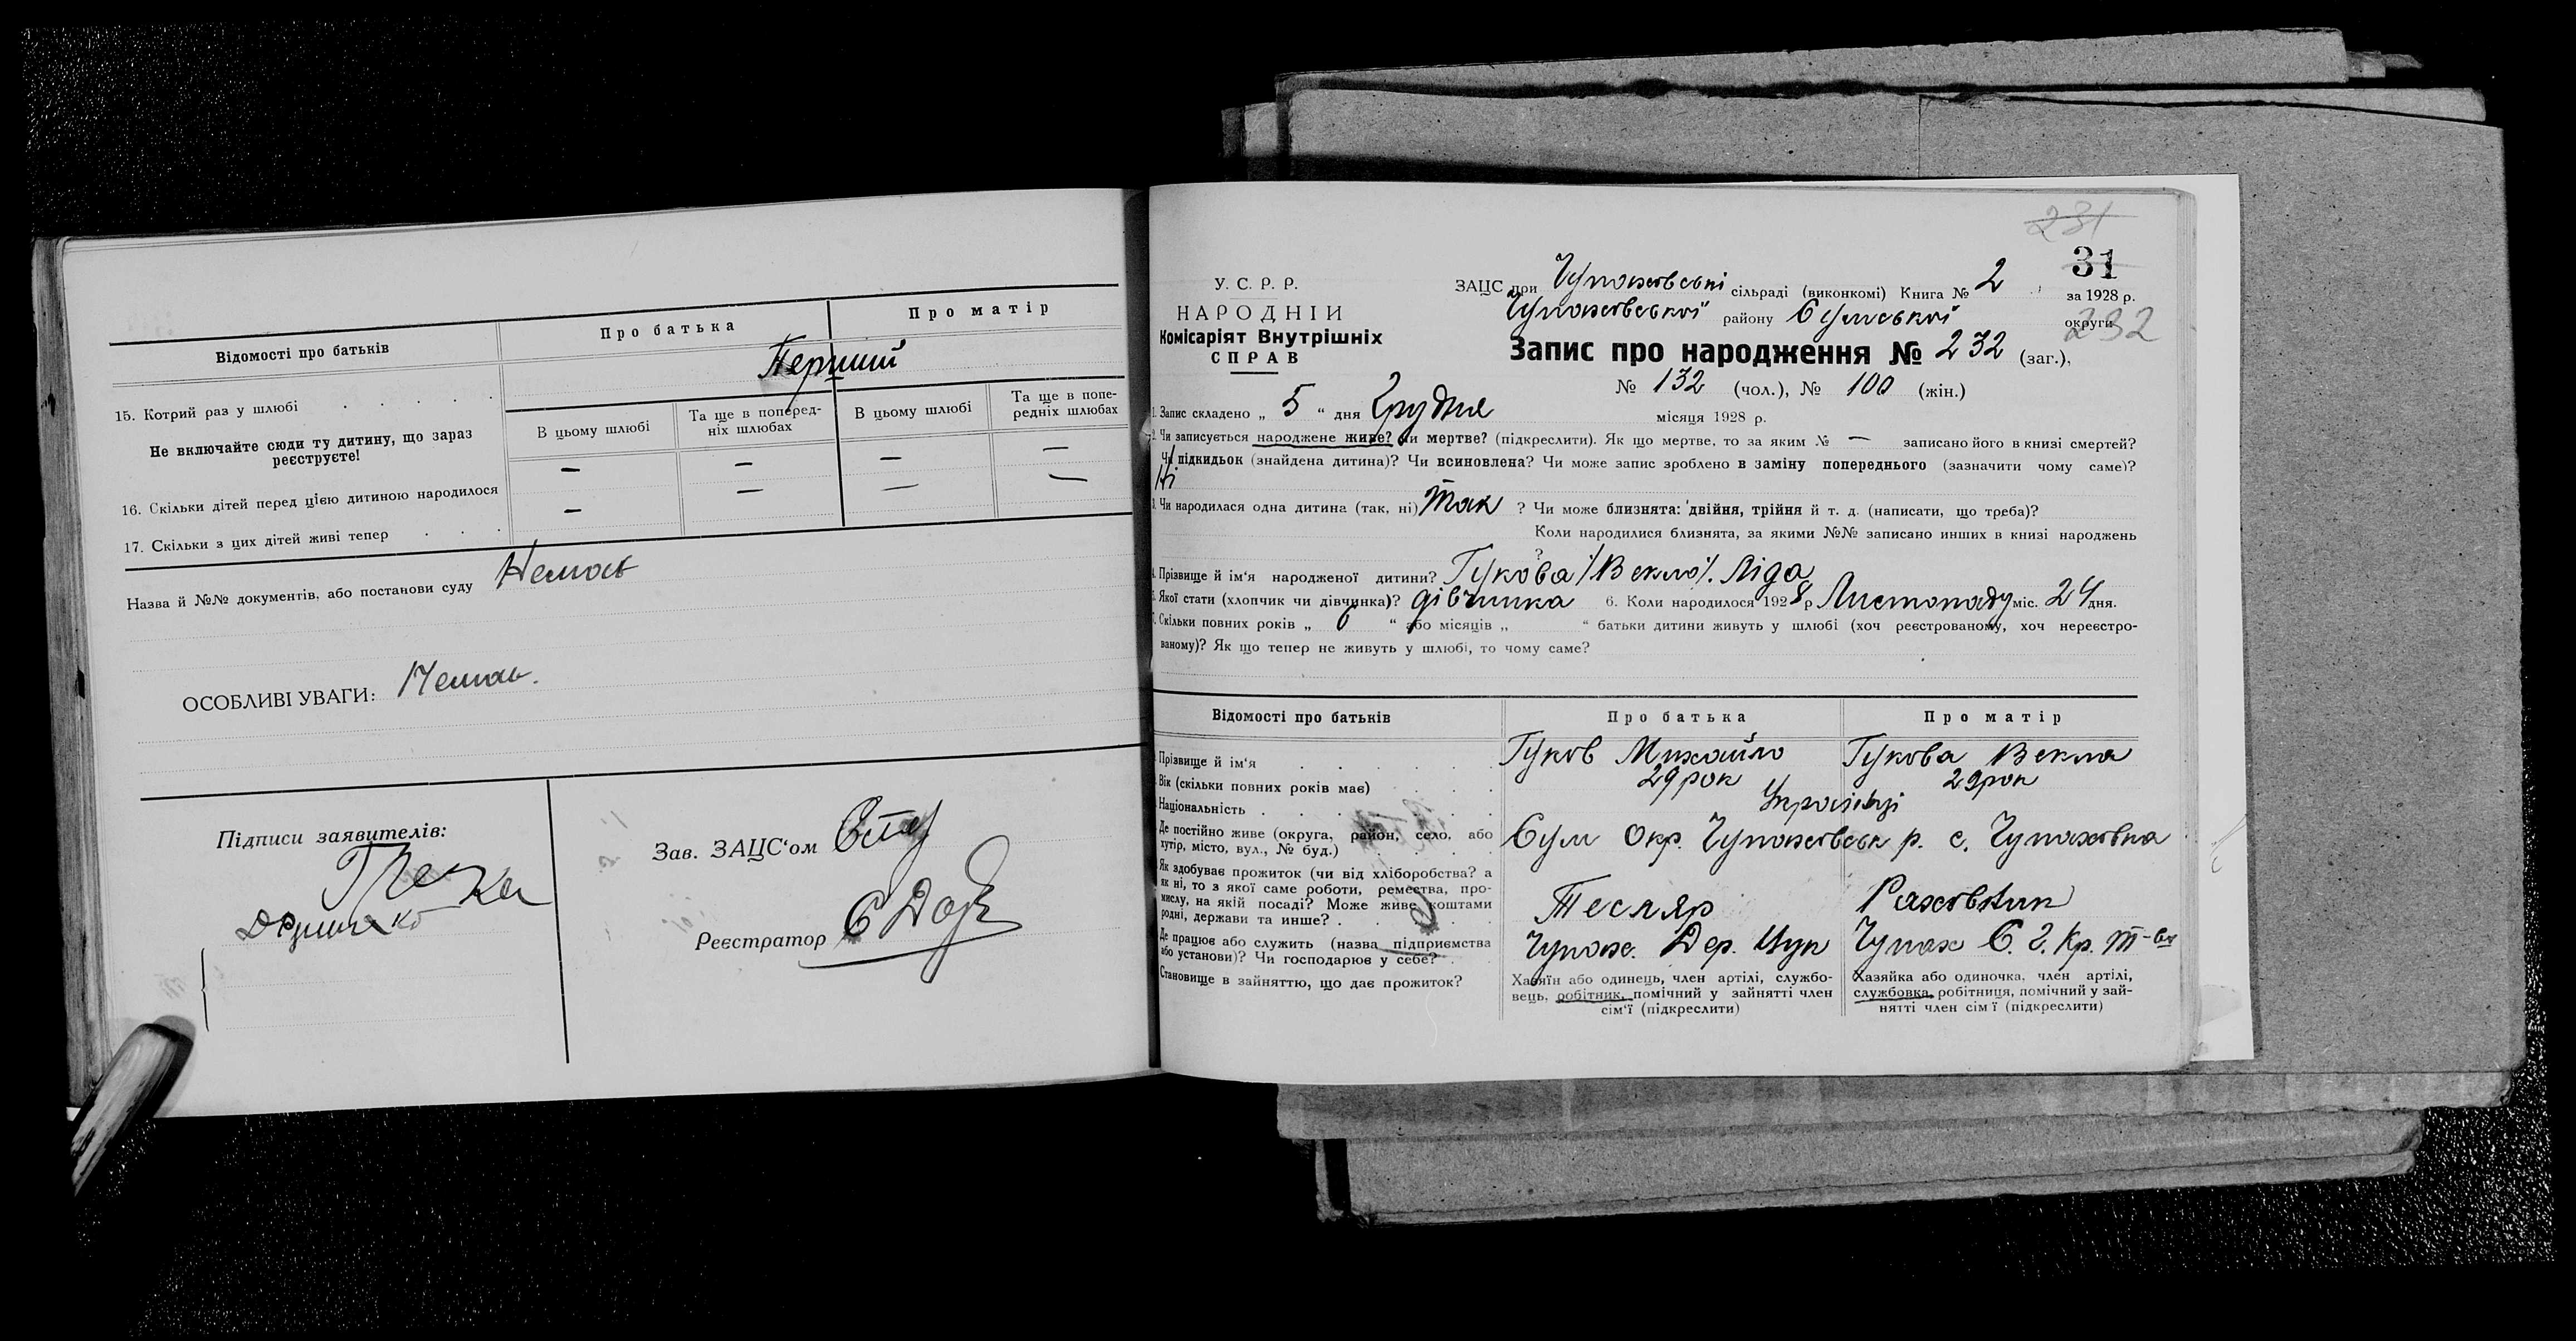 Відомості про батьків
Про батька
Про матір
15. Котрий раз у шлюбі . . . . .
Перший
Не включайте сюди ту дитину, що зараз
реєструєте!
В цьому шлюбі
Та ще в поперед-
ніх шлюбах
В цьому шлюбі
Та ще в попе-
редніх шлюбах
16. Скільки дітей перед цією дитиною народилося
— — — —
17. Скільки з цих дітей живі тепер . . .
— — — —
Назва й №№ документів, або постанови суду Немає
ОСОБЛИВІ УВАГИ: Немає.
Підписи заявителів:
Зав. ЗАЦС'ом
Реєстратор
231
31
У. С. Р. Р.
НАРОДНІЙ
Комісаріят Внутрішніх
СПРАВ
ЗАЦС при Чупахівські сільраді (виконкомі) Книга № 2 за 1928 р.
Чупахівської району Сумської округи
232
Запис про народження № 232 (заг.),
№ 132 (чол.), № 100 (жін.)
1. Запис складено „ 5 “ дня Грудня місяця 1928 р.
2. Чи записується народжене живе? чи мертве? (підкреслити). Як що мертве, то за яким № — записано його в книзі смертей?
Чи підкидьок (знайдена дитина)? Чи всиновлена? Чи може запис зроблено в заміну попереднього (зазначити чому саме)?
Ні
3. Чи народилася одна дитина (так, ні) Так ? Чи може близнята: двійня, трійня й т. д. (написати, що треба)?
Коли народилися близнята, за якими №№ записано инших в книзі народжень
?
4. Прізвище й ім'я народженої дитини? Гукова /Векло/. Ліда
5. Якої стати (хлопчик чи дівчинка)? дівчинка 6. Коли народилося 1928 р Листопаду міс. 24 дня.
7. Скільки повних років „ 6 “ або місяців „ “ батьки дитини живуть у шлюбі (хоч реєстрованому, хоч нереєстро-
ваному)? Як що тепер не живуть у шлюбі, то чому саме?
Відомості про батьків
Про батька
Про матір
Прізвище й ім'я . . . . . .
Гуков Михайло
Гукова Векла
Вік (скільки повних років має) . . . .
29 рок
29 рок
Національність . . . . . . .
Українці
Де постійно живе (округа, район, село, або
хутір, місто, вул., № буд.) . . . .
Сум Окр. Чупахівськ р. с. Чупахівка
Як здобуває прожиток (чи від хліборобства? а
як ні, то з якої саме роботи, ремества, про-
мислу, на якій посаді? Може живе коштами
родні, держави та инше? . . . . .
Тесляр
Рахівник
Де працює або служить (назва підприємства
або установи)? Чи господарює у себе? . .
Чупах. Дер. Цук
Чупах С. Г. Кр. Т-во
Становище в зайняттю, що дає прожиток?
Хазяїн або одинець, член артілі, службо-
вець, робітник, помічний у зайнятті член
сім'ї (підкреслити)
Хазяйка або одиночка, член артілі,
службовка, робітниця, помічний у зай-
нятті член сім'ї (підкреслити)